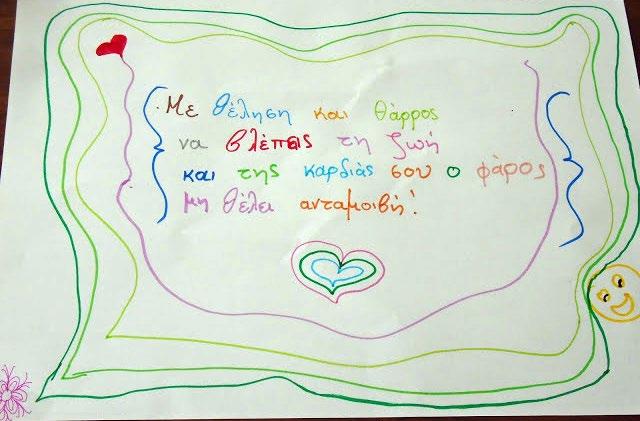 Με θέληση και θάρρος
να βλέπεις τη ζωή
και της καρδιάς σου ο φάρος
μη θέλει ανταμοιβή!